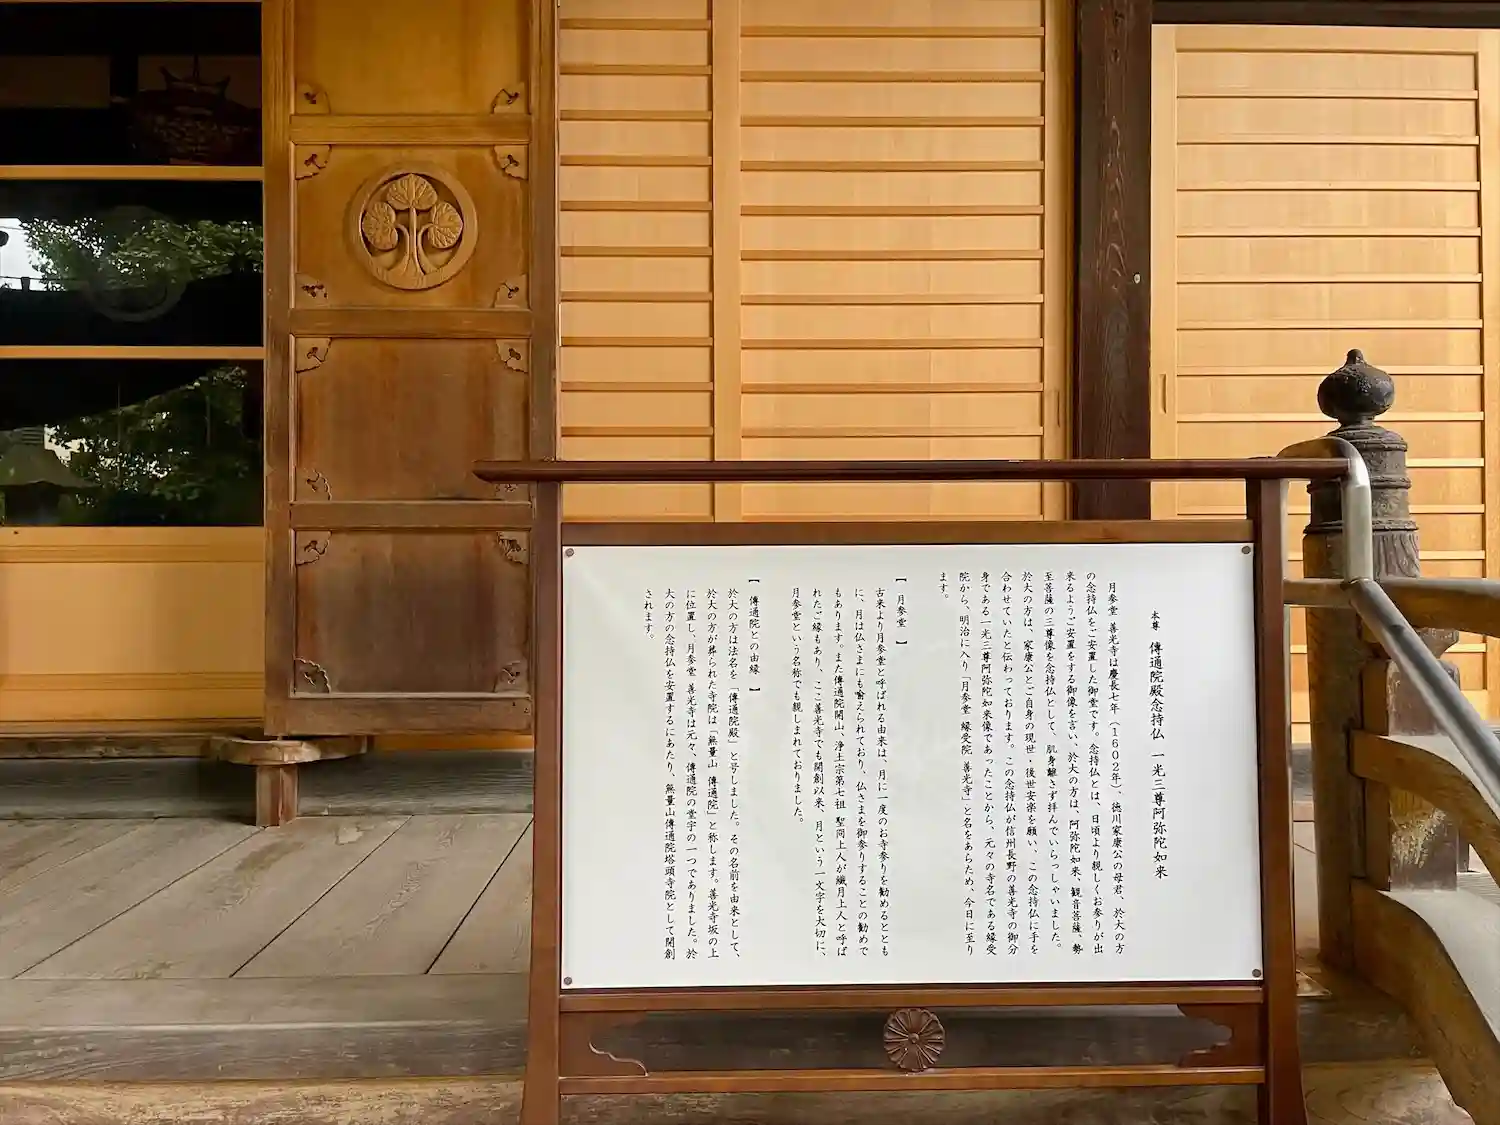 本尊　傳通院殿念持仏　一光三尊阿弥陀如来
月参堂 善光寺は慶長七年（1602年）、徳川家康公の母君、於大の方
の念持仏をご安置した御堂です。念持仏とは、日頃より親しくお参りが出
来るようご安置をする御像を言い、於大の方は、阿弥陀如来、観音菩薩、勢
至菩薩の三尊像を念持仏として、肌身離さず拝んでいらっしゃいました。
於大の方は、家康公とご自身の現世・後世安楽を願い、この念持仏に手を
合わせていたと伝わっております。この念持仏が信州長野の善光寺の御分
身である一光三尊阿弥陀如来像であったことから、元々の寺名である縁受
院から、明治に入り「月参堂 縁受院 善光寺」と名をあらため、今日に至り
ます。
【 月参堂 】
古来より月参堂と呼ばれる由来は、月に一度のお寺参りを勧めるととも
に、月は仏さまにも喩えられており、仏さまを御参りすることの勧めで
もあります。また傳通院開山、浄土宗第七祖 聖冏上人が繊月上人と呼ば
れたご縁もあり、ここ善光寺でも開創以来、月という一文字を大切に、
月参堂という名称でも親しまれておりました。
【 傳通院との由縁 】
於大の方は法名を「傳通院殿」と号しました。その名前を由来として、
於大の方が葬られた寺院は「無量山 傳通院」と称します。善光寺坂の上
に位置し、月参堂 善光寺は元々、傳通院の堂宇の一つでありました。於
大の方の念持仏を安置するにあたり、無量山傳通院塔頭寺院として開創
されます。